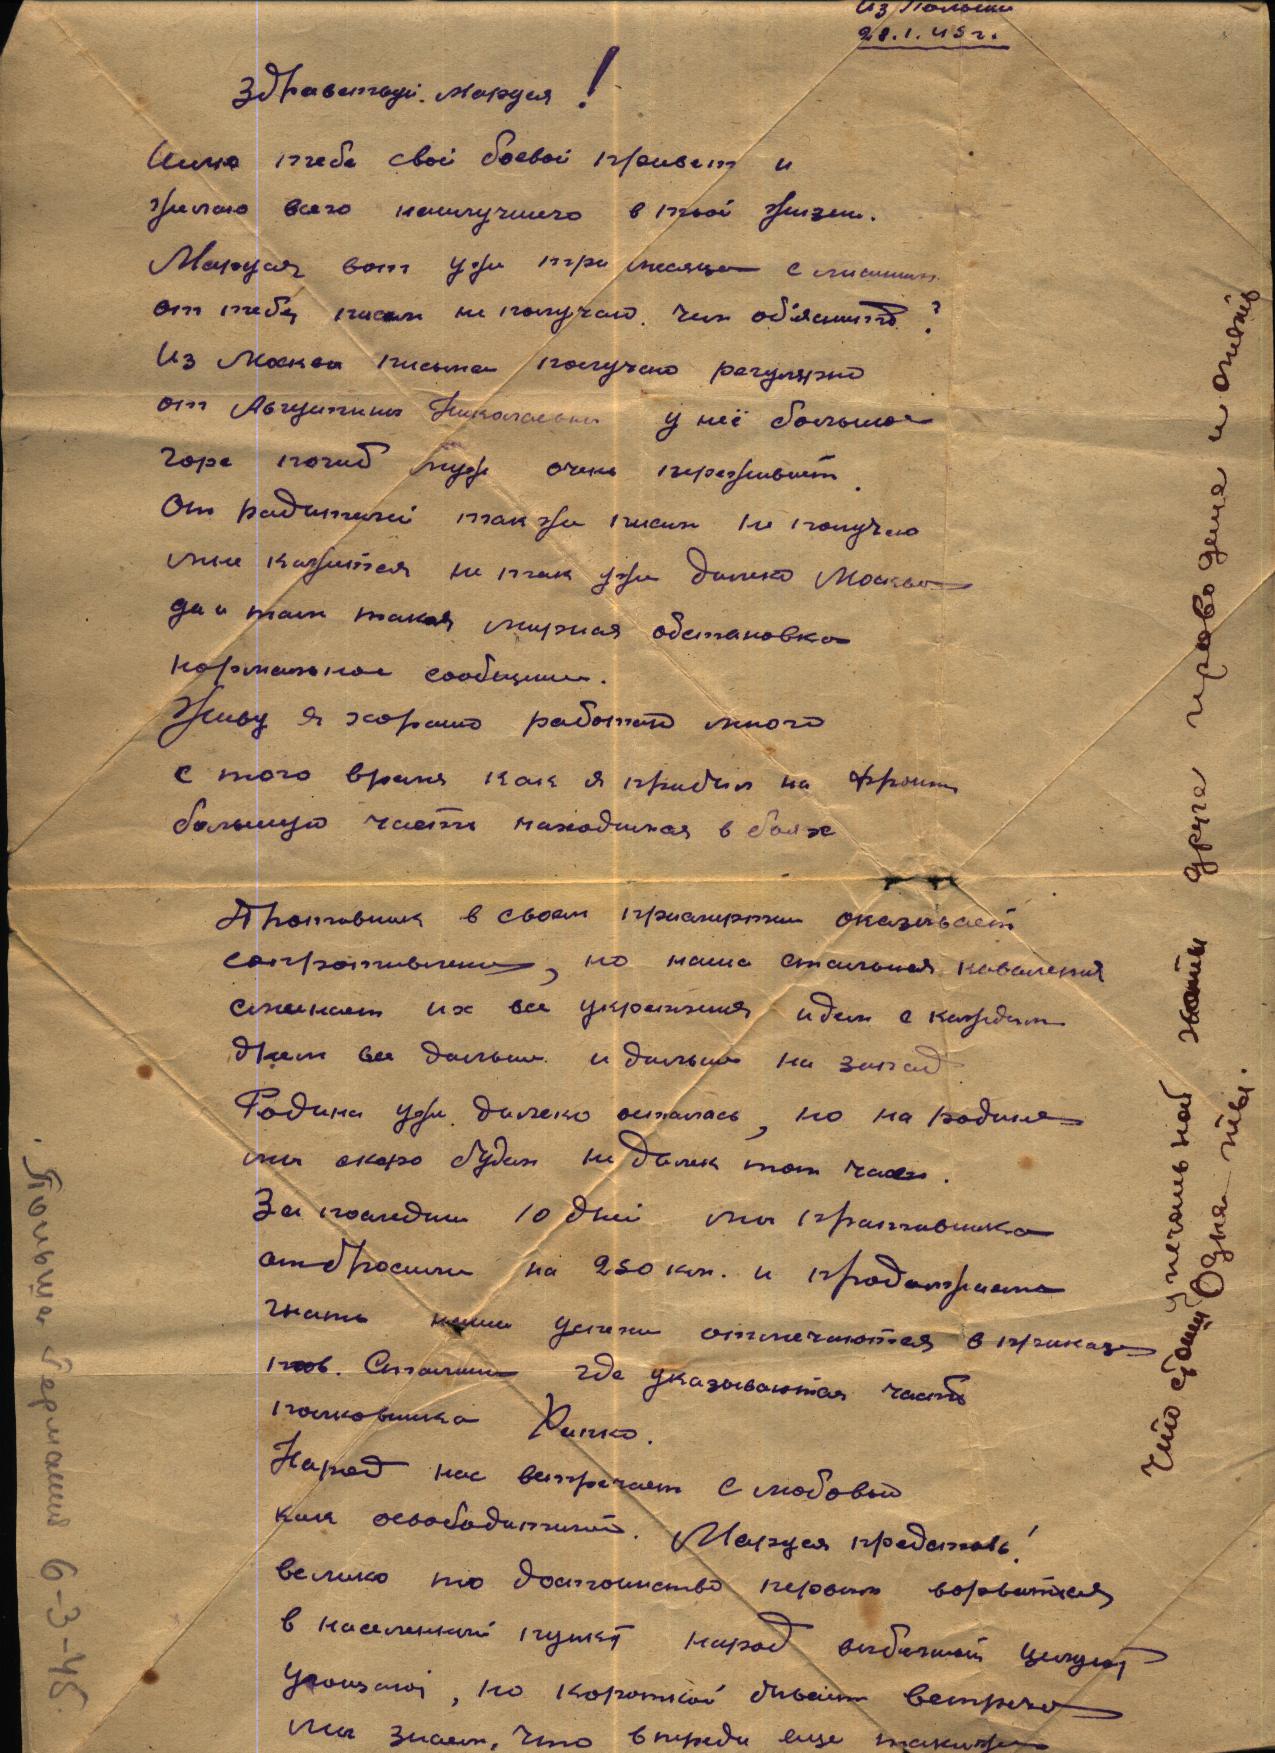 Из Польши
28.1.45 г.
Здравствуй Маруся!
Шлю тебе свой боевой привет и
желаю всего наилучшего в твоей жизни.
Маруся вот уже три месяца с лишним
от тебя писем не получаю. чем об'яснить?
Из Москвы письма получаю регулярно
от Августины Николаевны у неё большое
горе погиб муж очень переживает.
От родителей так же писем не получаю
мне кажется не так уж далеко Москва
да и там такая мирная обстановка
нормальное сообщение.
Живу я хорошо работаю много
с того время как я прибыл на фронт
большую часть находимся в боях
Противник в своем приамуртии оказывает
сопротивление, но наша стальная
сминает их все укрепления идем с каждым
днем все дальше и дальше на запад
Родина уже далеко осталась, но на родине
мы скоро будем не далек тот час.
За последние 10 дней мы противника
отбросили на 250 км. и продолжаем
гнать наши успехи отмечаются в приказе
тов. Сталина где указываются часть
полковника
Народ нас встречает с любовью
как освободителей. Маруся представь!
велико то достоинство первым ворваться
в населенный пункт народ выбегает целует
угощают, но короткой бывает встреча
мы знаем, что впереди еще такие же
Что стоишь у печальной хаты друга проводив и опять
Озня ты.
Польша Германия 6-3-45